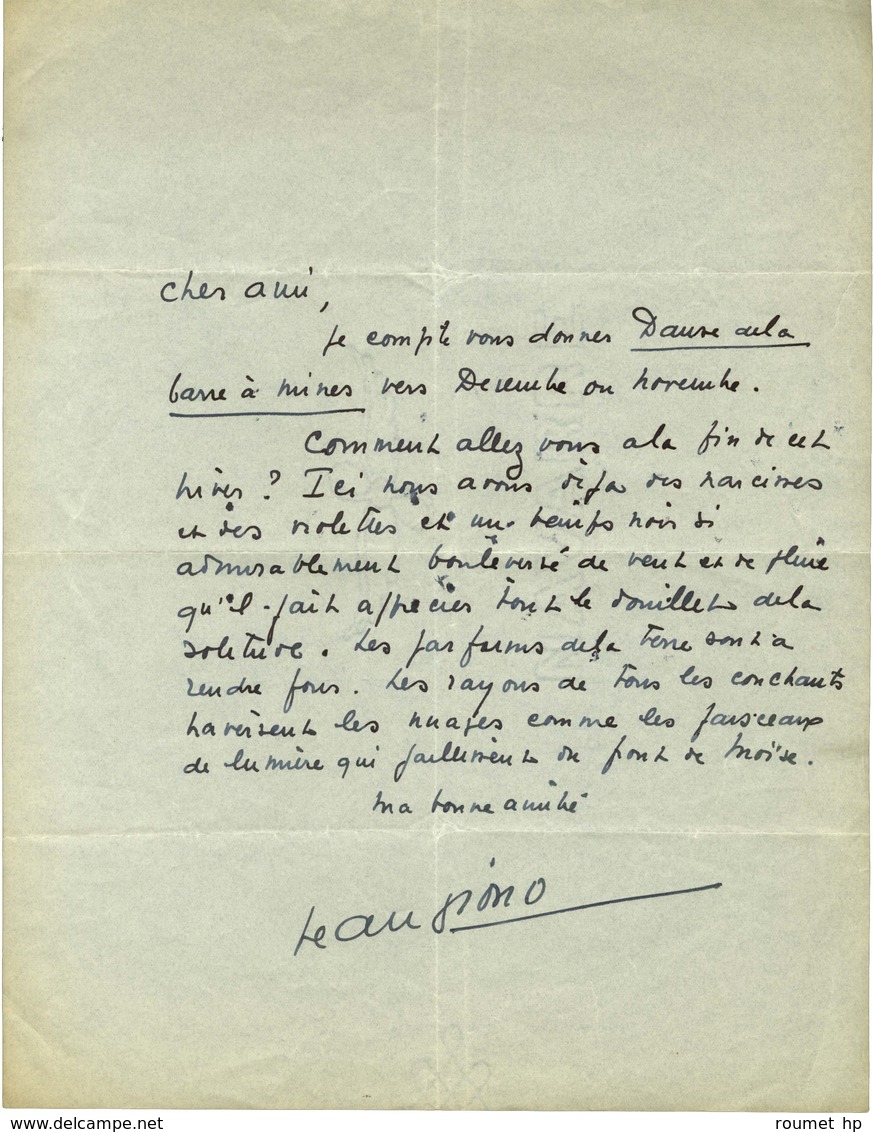 Cher ami,
je compte vous donner Danse de la
barre à mines vers Decembre ou novembre.
Comment allez vous a la fin de cet
hiver ? Ici nous avons déja des narcisses
et des violettes et un temps noir si
admirablement bouleversé de vent et de pluie
qu'il fait apprecier tout le douillet de la
solitude. Les parfums de la terre sont a
rendre fous. Les rayons de tous les couchants
traversent les nuages comme les faisceaux
de lumière qui jaillissent du front de Moïse.
Ma bonne amitié
Jean Giono
www.delcampe.net
roumet hp